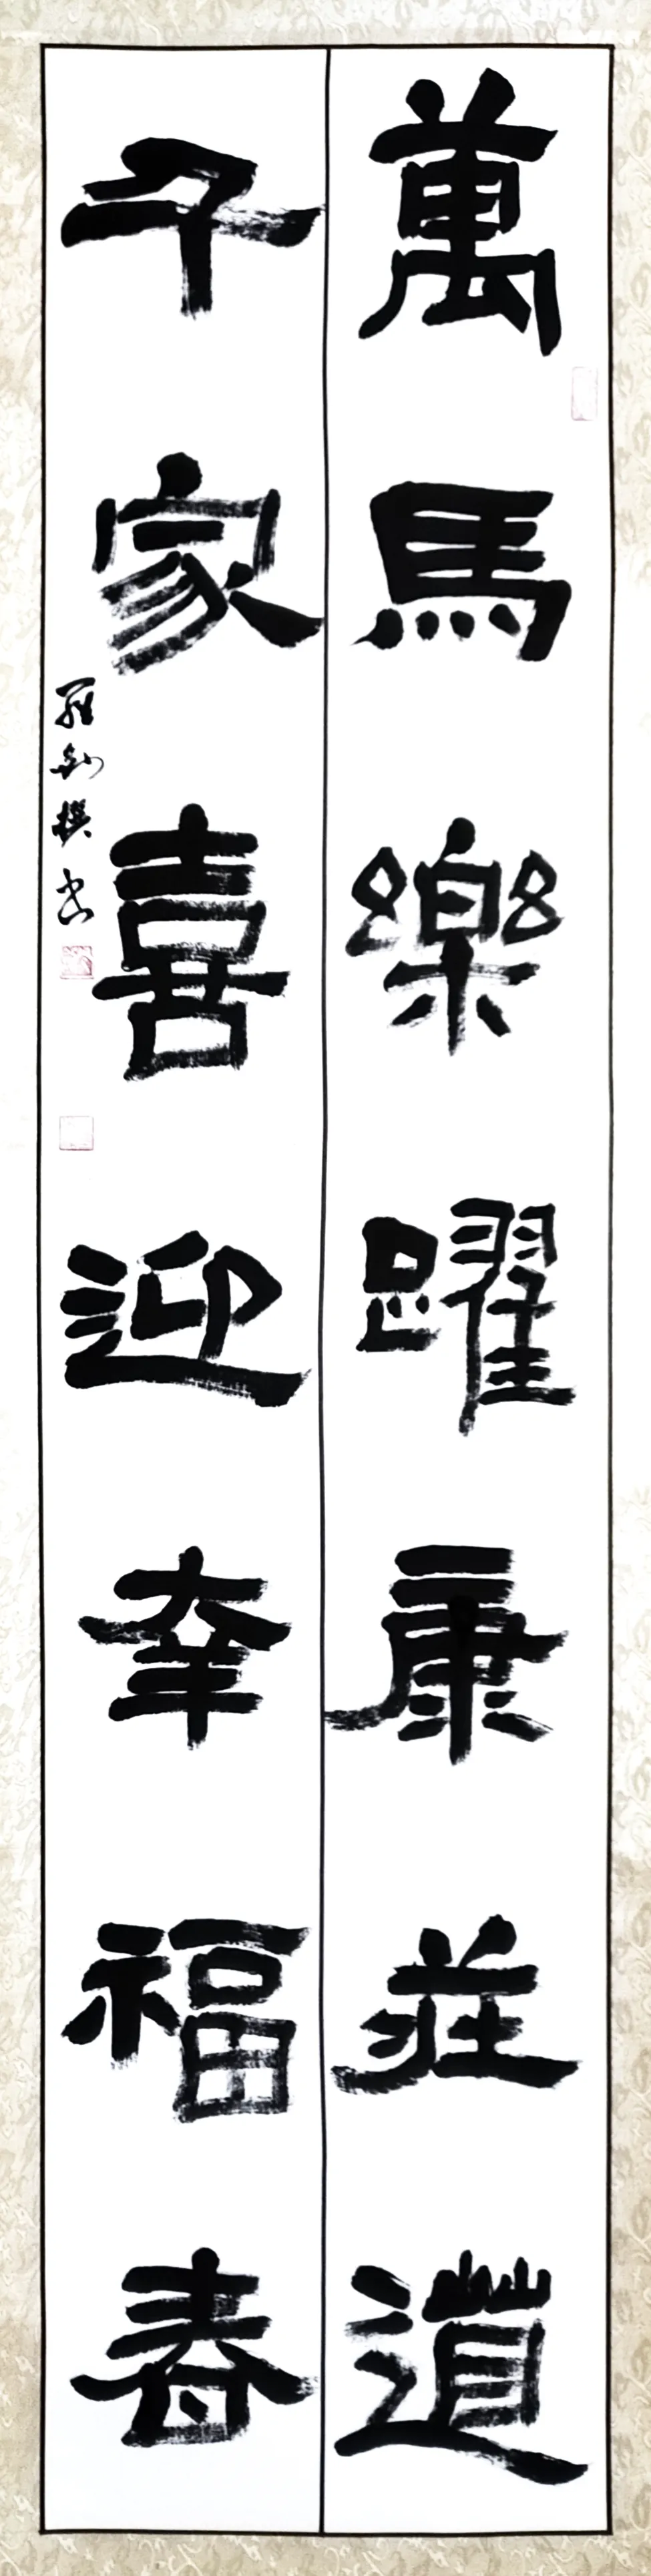 萬馬樂躍康莊道
千家喜迎幸福春
羅剑撰书